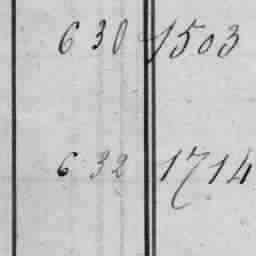 630 1503
632 1714